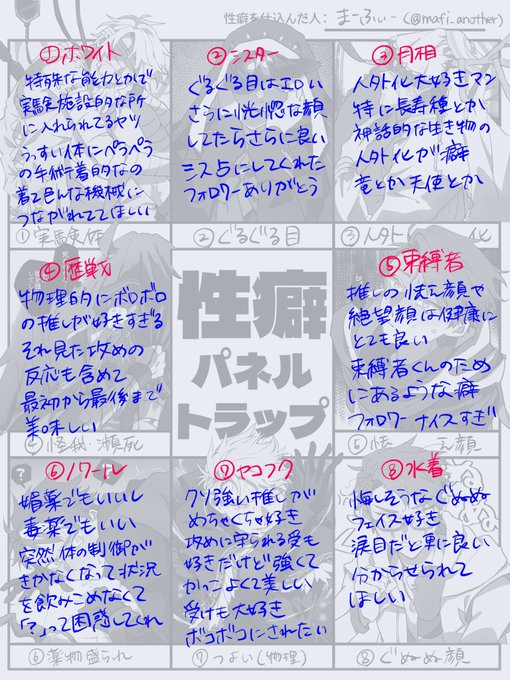 性癖を仕込んだ人： まーふぃー（@mafi_another）
①ホワイト
特殊な能力とかで
実験施設的な所
に入れられてるヤツ
うっすい体にペラペラ
の手術着的なの
着て色んな機械に
つながれててほしい
①実験体
②シスター
ぐるぐる目はエロい
さらに恍惚な顔
してたらさらに良い
ミス占にしてくれた
フォロワーありがとう
②ぐるぐる目
③月相
人外化大好きマン
特に長寿種とか
神話的な生き物の
人外化が癖
竜とか天使とか
③人外
化
④歴戦
物理的にボロボロ
の推しが好きすぎる
それ見た攻めの
反応も含めて
最初から最後まで
美味しい
④怪我・瀕死
性癖
パネル
トラップ
⑤束縛者
推しの怯え顔や
絶望顔は健康に
とても良い
束縛者くんのため
にあるような癖
フォロワーナイスすぎ
⑤怯
え顔
⑥ノワール
媚薬でもいいし
毒薬でもいい
突然体の制御が
きかなくなって状況
を飲みこめなくて
「？」って困惑してくれ
⑥薬物盛られ
⑦ヤコフク
クソ強い推しが
めちゃくちゃ好き
攻めに守られる受も
好きだけど強くて
かっこよくて美しい
受けも大好き
ボコボコにされたい
⑦つよい（物理）
⑧水着
悔しそうなぐぬぬ
フェイス好き
涙目だと更に良い
分からせられて
ほしい
⑧ぐぬぬ顔